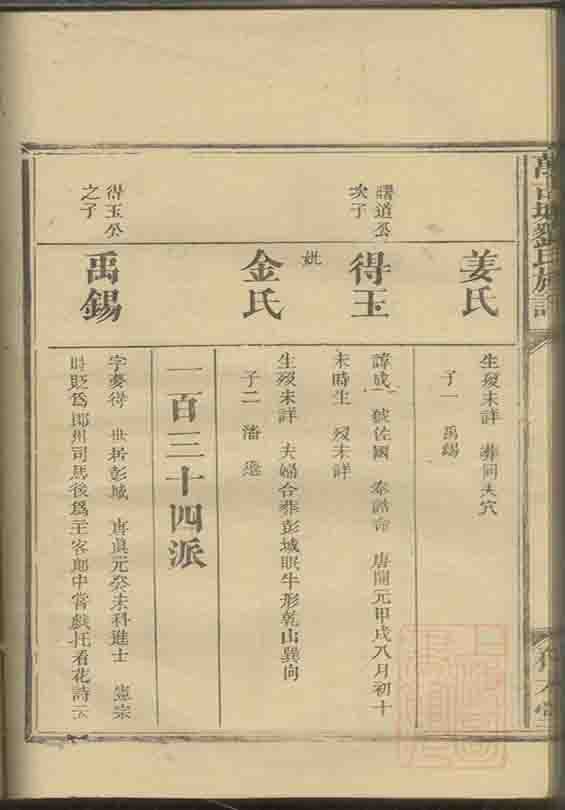 姜氏
生殁未詳 葬同夫穴
子一 禹錫
曙道公
次子
得玉
諱成一 號佐國 奉誥命 唐開元甲戌八月初十
未時生 殁未詳
妣
金氏
生殁未詳 夫婦合葬彭城眠牛形乾山巽向
子二 潘
一百三十四派
得玉公
之子
禹錫
字夢得 世居彭城 唐眞元癸未科進士 憲宗
時貶爲郎州司馬後爲主客郎中嘗戲托看花詩云
劉氏族譜